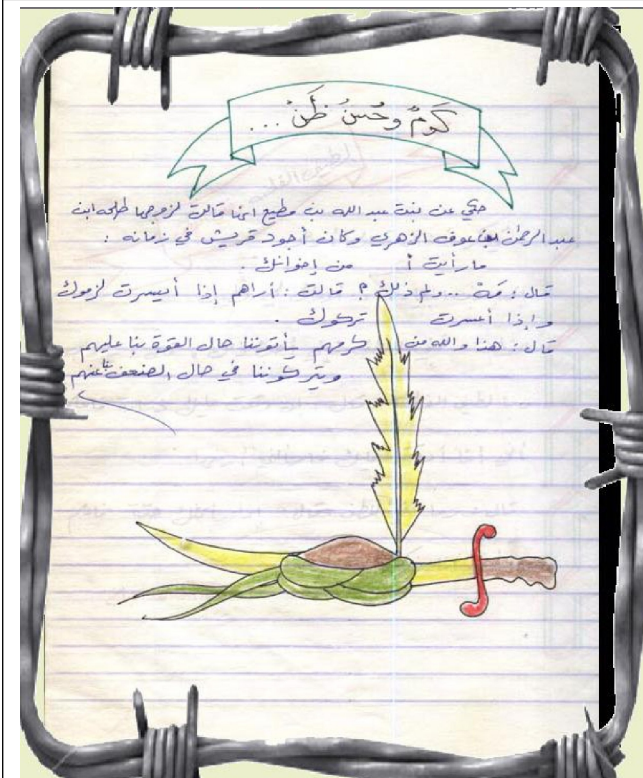 كَرَمٌ وحُسنُ ظَنْ ...
حكي عن بنت عبد الله بن مطيع انها قالت لزوجها طلحة ابن
عبد الرحمن بن عوف الزهري وكان أجود قريش في زمانه :
ما رأيت أ من إخوانك .
قال : مَهْ .. ولم ذلك ؟ قالت : أراهم إذا أيسرت لزموك
وإذا أعسرت تركوك .
قال : هذا والله من كرمهم يأتوننا حال القوة بنا عليهم
ويتركوننا في حال الضعف بنا عنهم